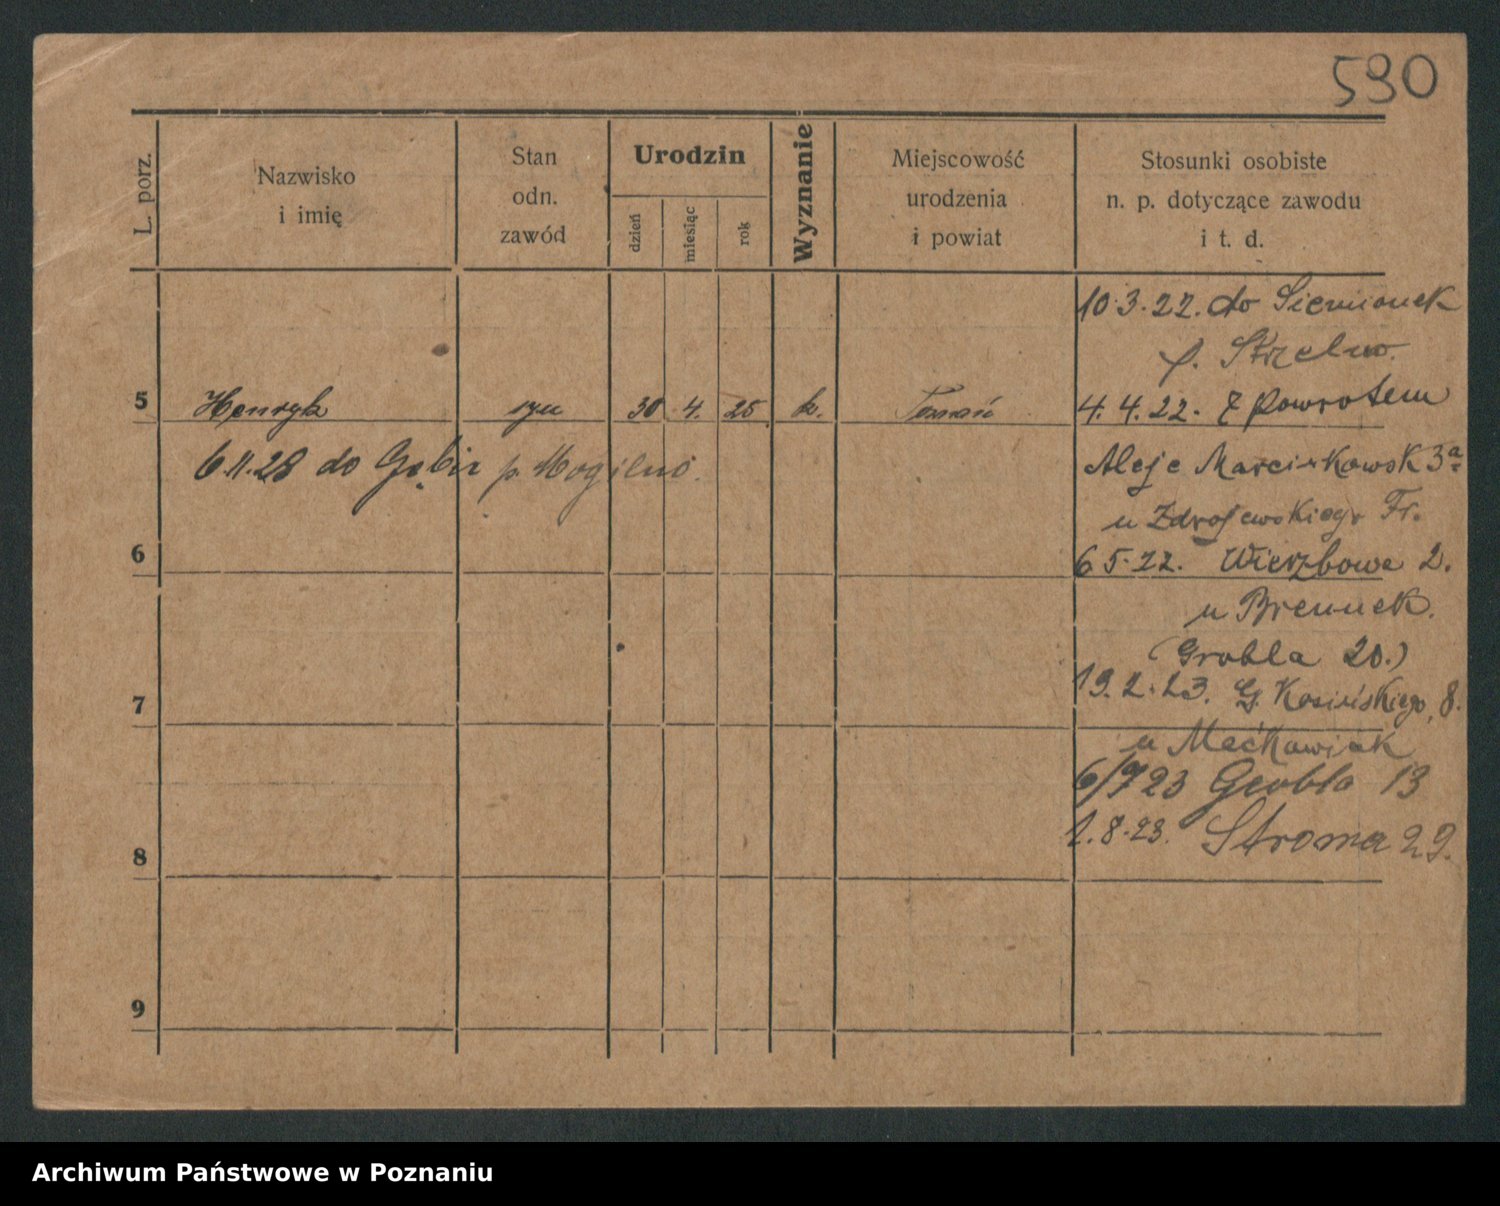 590
L. porz.
Nazwisko
i imię
Stan
odn.
zawód
Urodzin
dzień
miesiąc
rok
Wyznanie
Miejscowość
urodzenia
i powiat
Stosunki osobiste
n. p. dotyczące zawodu
i t. d.
10.3.22. do Siemionek
p. Strzelno.
5 Henryk syn 30 4. 25 k. Poznań 4.4.22. z powrotem
6.11.28 do Gębic p. Mogilno.
Aleje Marcinkowsk 3a
u Zdrojewskiego Fr.
6
6 5.22. Wierzbowa 2.
u Brennek.
(Grobla 20.)
7
19.2.23. G. Kosińskiego, 8.
u Maćkowiak
6/7 23 Grobla 13
8
1.8.23. Stroma 29.
9
Archiwum Państwowe w Poznaniu